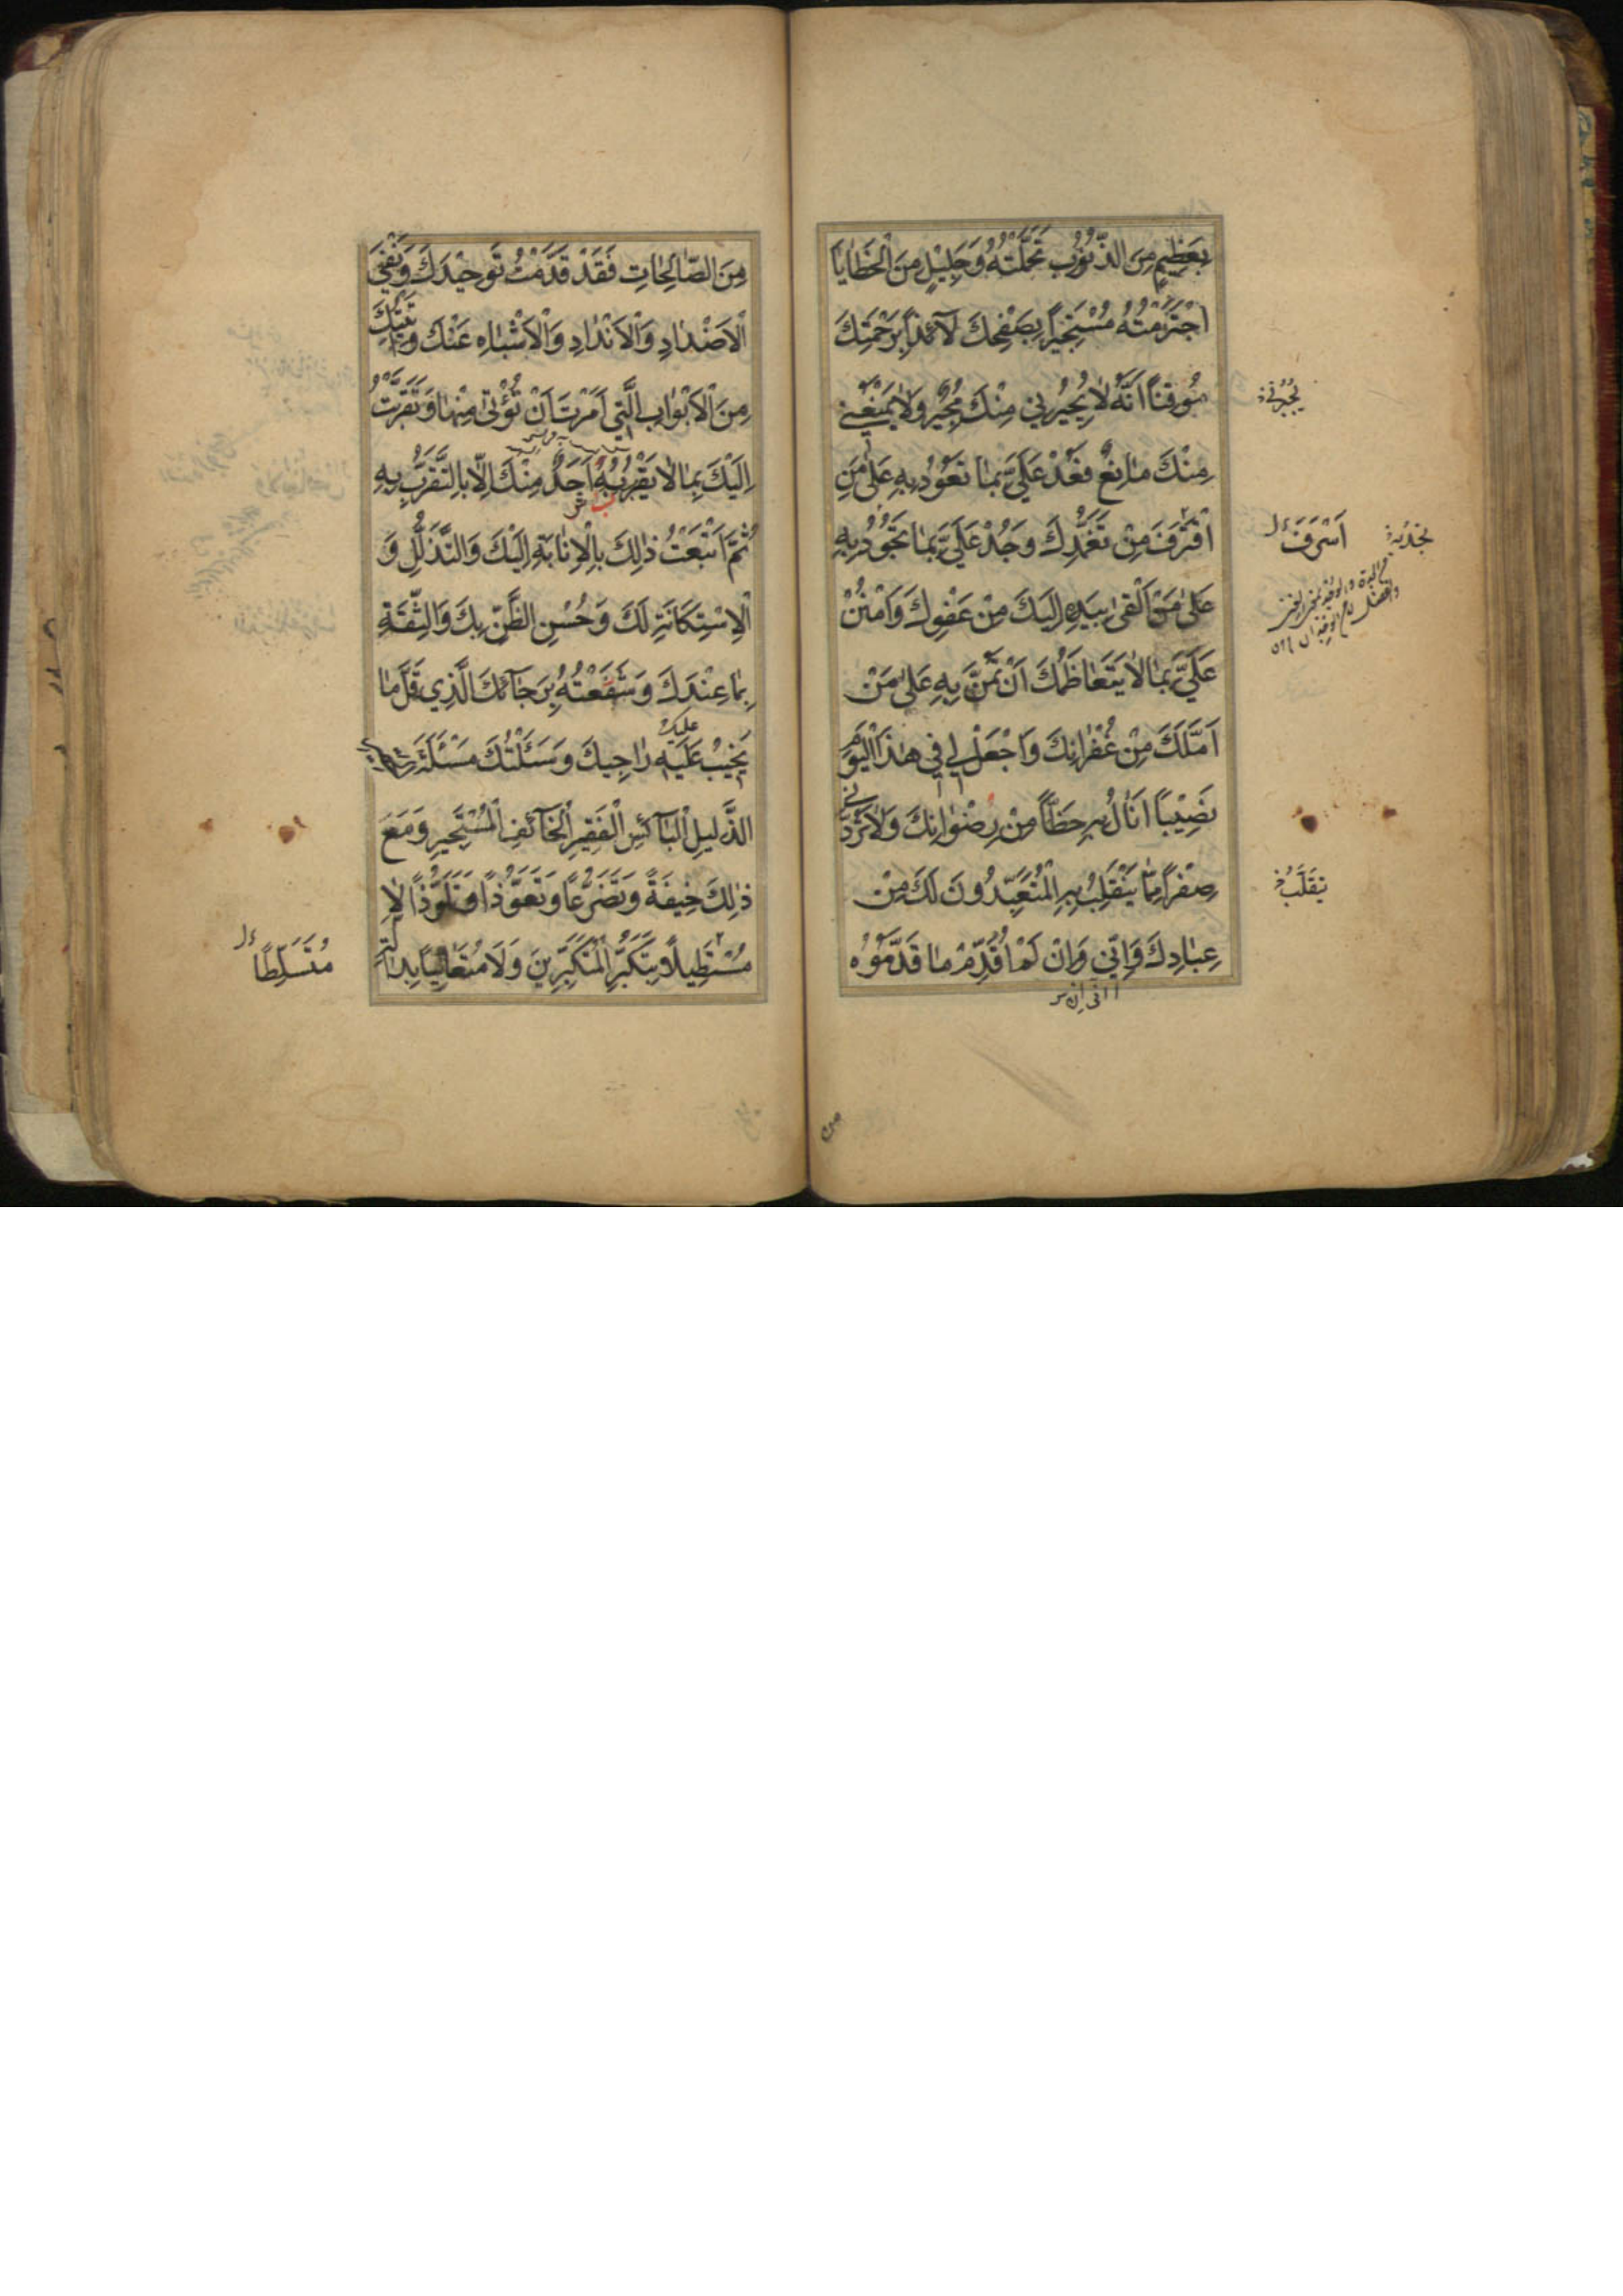 بَعَظِيمٍ مِنَ الذُّنُوبِ تَحَمَّلْتُهُ وَجَلِيْلٍ مِنَ الْخَطَايَا
اجْتَرَمْتُهُ مُسْتَجِيرًا بِصَفْحِكَ لَآئِذًا بِرَحْمَتِكَ
مُوقِنًا اَنَّهُ لَا يُجِيرُنِي مِنْكَ مُجِيرٌ وَلَا يَمْنَعُنِي
مِنْكَ مَانِعٌ فَعُدْ عَلَيَّ بِمَا تَعُوْدُ بِهِ عَلَى مَنِ
اقْتَرَفَ مِنْ تَغَمُّدِكَ وَجُدْ عَلَيَّ بِمَا تَجُوْدُ بِهِ
عَلَى مَنْ اَلْقَى بِيَدِهِ اِلَيْكَ مِنْ عَفْوِكَ وَامْنُنْ
عَلَيَّ بِمَا لَا يَتَعَاظَمُكَ اَنْ تَمُنَّ بِهِ عَلَى مَنْ
اَمَّلَكَ مِنْ غُفْرَانِكَ وَاجْعَلْ لِي فِي هٰذَا الْيَوْمِ
نَصِيْبًا اَنَالُ بِهِ حَظًّا مِنْ رِضْوَانِكَ وَلَا تَرُدَّنِي
صِفْرًا مِمَّا يَنْقَلِبُ بِهِ الْمُتَعَبِّدُونَ لَكَ مِنْ
عِبَادِكَ وَاِنِّي وَاِنْ لَمْ اُقَدِّمْ مَا قَدَّمُوْهُ
يُجِيرُنِي
اَسْرَفَ
يَنْقَلِبُ
مِنَ الصَّالِحَاتِ فَقَدْ قَدَّمْتُ تَوْحِيْدَكَ وَنَفْيَ
الْاَضْدَادِ وَالْاَنْدَادِ وَالْاَشْبَاهِ عَنْكَ وَاَتَيْتُكَ
مِنَ الْاَبْوَابِ الَّتِي اَمَرْتَ اَنْ تُؤْتَى مِنْهَا وَتَقَرَّبْتُ
اِلَيْكَ بِمَا لَا يَقْرُبُ بِهِ اَحَدٌ مِنْكَ اِلَّا بِالتَّقَرُّبِ بِهِ
ثُمَّ اَتْبَعْتُ ذٰلِكَ بِالْاِنَابَةِ اِلَيْكَ وَالتَّذَلُّلِ وَ
الْاِسْتِكَانَةِ لَكَ وَحُسْنِ الظَّنِّ بِكَ وَالثِّقَةِ
بِمَا عِنْدَكَ وَشَفَعْتُهُ بِرَجَآئِكَ الَّذِي قَلَّ مَا
يَخِيْبُ عَلَيْهِ رَاجِيكَ وَسَئَلْتُكَ مَسْئَلَةَ
عليك
الذَّلِيلِ الْبَآئِسِ الْفَقِيرِ الْخَآئِفِ الْمُسْتَجِيرِ وَمَعَ
ذٰلِكَ خِيفَةً وَتَضَرُّعًا وَتَعَوُّذًا وَتَلَوُّذًا لَا
مُسْتَطِيلًا بِتَكَبُّرِ الْمُتَكَبِّرِينَ وَلَا مُتَعَالِيًا بِدَالَّةِ
مُتَسَلِّطًا